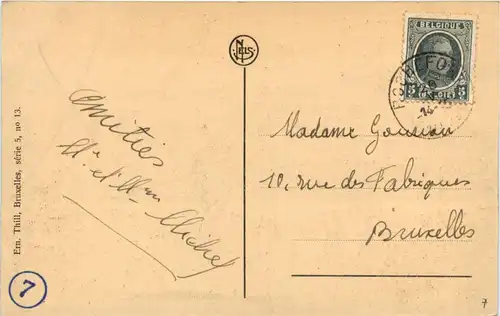 Ern. Thill, Bruxelles, série 5, nº 13.
NELS
BELGIQUE
5 5
BELGIË
ROCHEFORT
amitiés
Mr et Mme Michel
Madame
10, rue des Fabriques
Bruxelles
7
7